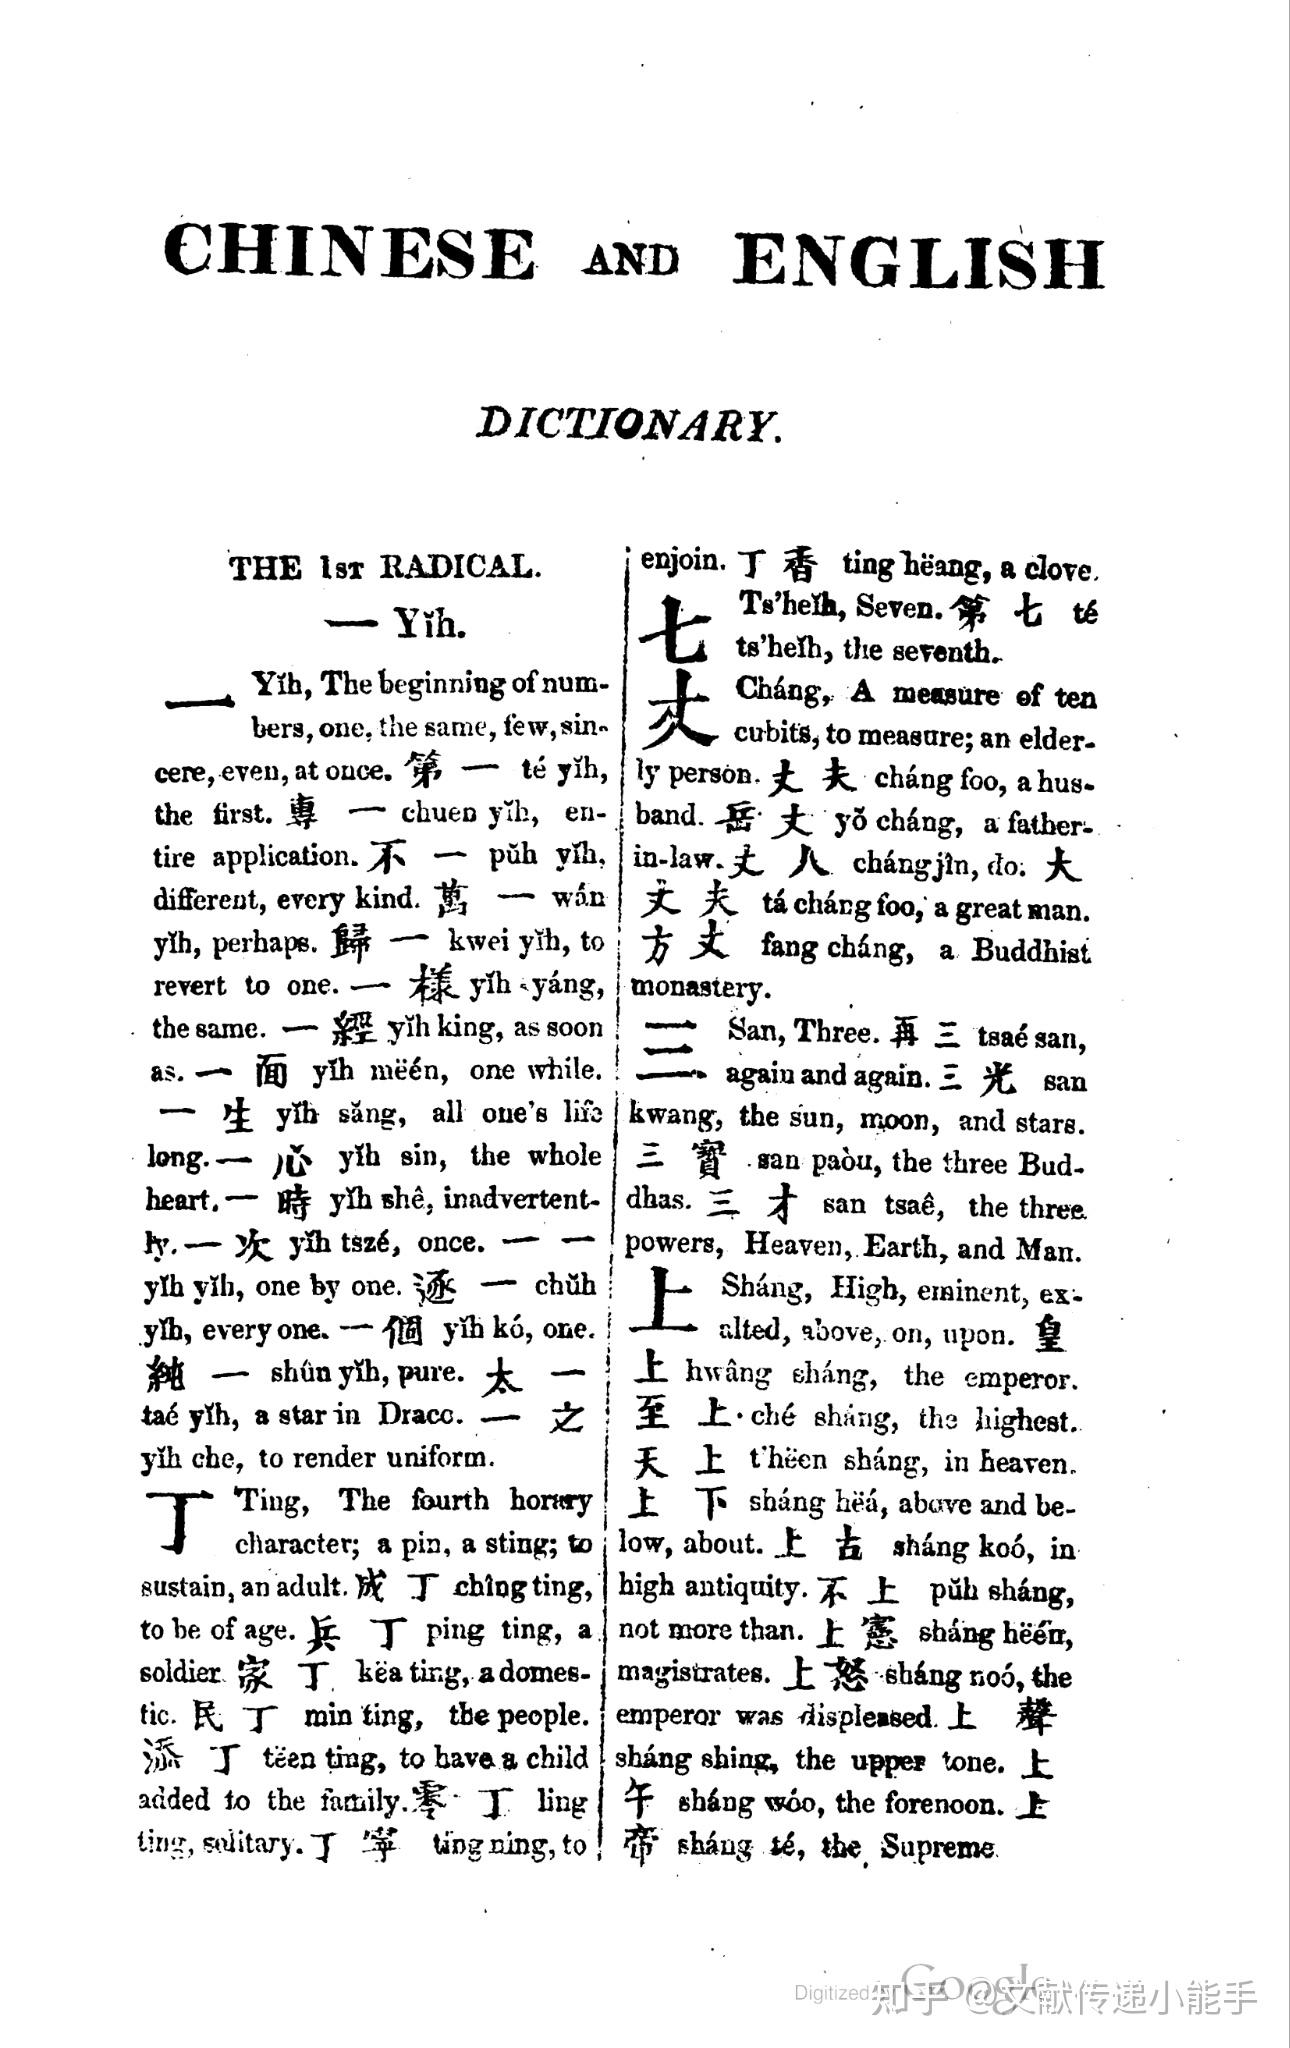 CHINESE AND ENGLISH
DICTIONARY.
THE 1ST RADICAL.
一 Yĭh.
一 Yĭh, The beginning of num-
bers, one, the same, few, sin-
cere, even, at once. 第 一 té yĭh,
the first. 專 一 chuen yĭh, en-
tire application. 不 一 pŭh yĭh,
different, every kind. 萬 一 wán
yĭh, perhaps. 歸 一 kwei yĭh, to
revert to one. 一 樣 yĭh yáng,
the same. 一 經 yĭh king, as soon
as. 一 面 yĭh mëén, one while.
一 生 yĭh săng, all one's life
long. 一 心 yĭh sin, the whole
heart. 一 時 yĭh shê, inadvertent-
ly. 一 次 yĭh tszé, once. 一 一
yĭh yĭh, one by one. 逐 一 chŭh
yĭh, every one. 一 個 yĭh kó, one.
純 一 shûn yĭh, pure. 太 一
taé yĭh, a star in Draco. 一 之
yĭh che, to render uniform.
丁 Ting, The fourth horary
character; a pin, a sting; to
sustain, an adult. 成 丁 chîng ting,
to be of age. 兵 丁 ping ting, a
soldier. 家 丁 këa ting, a domes-
tic. 民 丁 min ting, the people.
添 丁 tëen ting, to have a child
added to the family. 零 丁 ling
ting, solitary. 丁 寧 ting ning, to
enjoin. 丁 香 ting hëang, a clove.
七 Ts'heĭh, Seven. 第 七 té
ts'heĭh, the seventh.
丈 Cháng, A measure of ten
cubits, to measure; an elder-
ly person. 丈 夫 cháng foo, a hus-
band. 岳 丈 yŏ cháng, a father-
in-law. 丈 人 cháng jîn, do. 大
丈 夫 tá cháng foo, a great man.
方 丈 fang cháng, a Buddhist
monastery.
三 San, Three. 再 三 tsaé san,
again and again. 三 光 san
kwang, the sun, moon, and stars.
三 寶 san paòu, the three Bud-
dhas. 三 才 san tsaê, the three
powers, Heaven, Earth, and Man.
上 Sháng, High, eminent, ex-
alted, above, on, upon. 皇
上 hwâng sháng, the emperor.
至 上 ché sháng, the highest.
天 上 t'hëen sháng, in heaven.
上 下 sháng hëá, above and be-
low, about. 上 古 sháng koó, in
high antiquity. 不 上 pŭh sháng,
not more than. 上 憲 sháng hëén,
magistrates. 上 怒 sháng noó, the
emperor was displeased. 上 聲
sháng shing, the upper tone. 上
午 sháng wóo, the forenoon. 上
帝 sháng té, the Supreme
Digitized by Google
知乎 @文献传递小能手